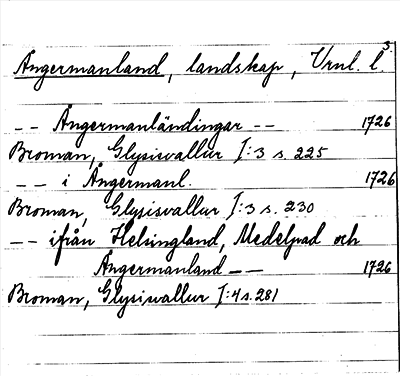 Ångermanland, landskap, Vrnl. l.
-- Ångermanländingar -- 1726
Broman, Glysisvallur I:3 s. 225
-- i Ångermanl. 1726
Broman, Glysisvallur I:3 s. 230
-- ifrån Helsingland, Medelpad och
Ångermanland -- 1726
Broman, Glysisvallur I:4 s. 281